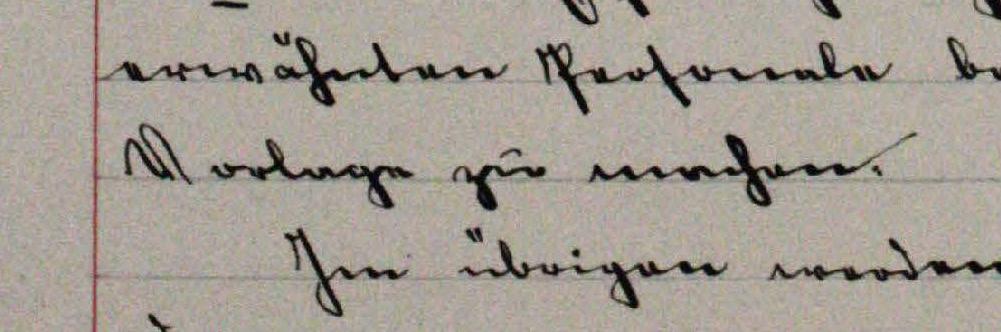 erwähnten Personale be
Vorlage zu machen.
Im übrigen werden